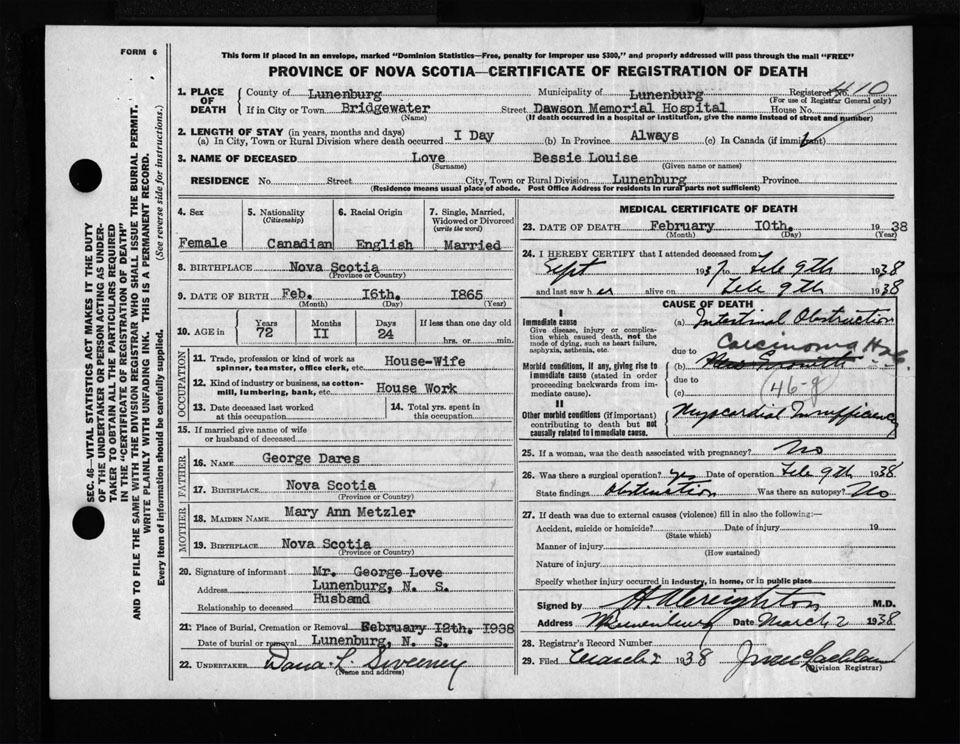 FORM 6
This form if placed in an envelope, marked "Dominion Statistics—Free, penalty for improper use $300," and properly addressed will pass through the mail "FREE"
PROVINCE OF NOVA SCOTIA—CERTIFICATE OF REGISTRATION OF DEATH
SEC. 46—VITAL STATISTICS ACT MAKES IT THE DUTY
OF THE UNDERTAKER OR PERSON ACTING AS UNDER-
TAKER TO OBTAIN ALL THE PARTICULARS REQUIRED
IN THE "CERTIFICATE OF REGISTRATION OF DEATH"
AND TO FILE THE SAME WITH THE DIVISION REGISTRAR WHO SHALL ISSUE THE BURIAL PERMIT.
WRITE PLAINLY WITH UNFADING INK. THIS IS A PERMANENT RECORD.
Every item of information should be carefully supplied. (See reverse side for instructions.)
1. PLACE OF DEATH
County of Lunenburg Municipality of Lunenburg Registered No. 4110
(For use of Registrar General only)
If in City or Town Bridgewater Street Dawson Memorial Hospital House No.
(Name) (If death occurred in a hospital or institution, give the name instead of street and number)
2. LENGTH OF STAY (in years, months and days)
(a) In City, Town or Rural Division where death occurred I Day (b) In Province Always (c) In Canada (if immigrant)
3. NAME OF DECEASED Love Bessie Louise
(Surname) (Given name or names)
RESIDENCE No. Street City, Town or Rural Division Lunenburg Province
(Residence means usual place of abode. Post Office Address for residents in rural parts not sufficient)
4. Sex Female
5. Nationality (Citizenship) Canadian
6. Racial Origin English
7. Single, Married, Widowed or Divorced (write the word) Married
8. BIRTHPLACE Nova Scotia
(Province or Country)
9. DATE OF BIRTH Feb. 16th. 1865
(Month) (Day) (Year)
10. AGE in Years 72 Months II Days 24 If less than one day old hrs. or min.
OCCUPATION
11. Trade, profession or kind of work as spinner, teamster, office clerk, etc. House-Wife
12. Kind of industry or business, as cotton-mill, lumbering, bank, etc. House Work
13. Date deceased last worked at this occupation
14. Total yrs. spent in this occupation
15. If married give name of wife or husband of deceased
FATHER
16. NAME George Dares
17. BIRTHPLACE Nova Scotia
(Province or Country)
MOTHER
18. MAIDEN NAME Mary Ann Metzler
19. BIRTHPLACE Nova Scotia
(Province or Country)
20. Signature of informant Mr. George Love
Address Lunenburg, N. S.
Relationship to deceased Husband
21. Place of Burial, Cremation or Removal February 12th. 1938
Date of burial or removal Lunenburg, N. S.
22. UNDERTAKER Dana L. Sweeney
(Name and address)
MEDICAL CERTIFICATE OF DEATH
23. DATE OF DEATH February 10th. 1938
(Month) (Day) (Year)
24. I HEREBY CERTIFY that I attended deceased from
Sept 1937 to Feb 9th 1938
and last saw her alive on Feb 9th 1938
CAUSE OF DEATH
I
Immediate cause
Give disease, injury or complication which caused death, not the mode of dying, such as heart failure, asphyxia, asthenia, etc.
(a) Intestinal Obstruction
due to Carcinoma
Morbid conditions, if any, giving rise to immediate cause (stated in order proceeding backwards from immediate cause).
(b) New Growth
due to
(c) (46-g)
II
Other morbid conditions (if important) contributing to death but not causally related to immediate cause.
Myocardial Insufficiency
25. If a woman, was the death associated with pregnancy? No
26. Was there a surgical operation? yes Date of operation Feb 9th 1938
State findings Obstruction Was there an autopsy? No
27. If death was due to external causes (violence) fill in also the following:—
Accident, suicide or homicide? Date of injury 19
(State which)
Manner of injury
(How sustained)
Nature of injury
Specify whether injury occurred in industry, in home, or in public place
Signed by H. A. Creighton M.D.
Address Lunenburg Date March 2 1938
28. Registrar's Record Number
29. Filed March 2 1938
(Division Registrar)